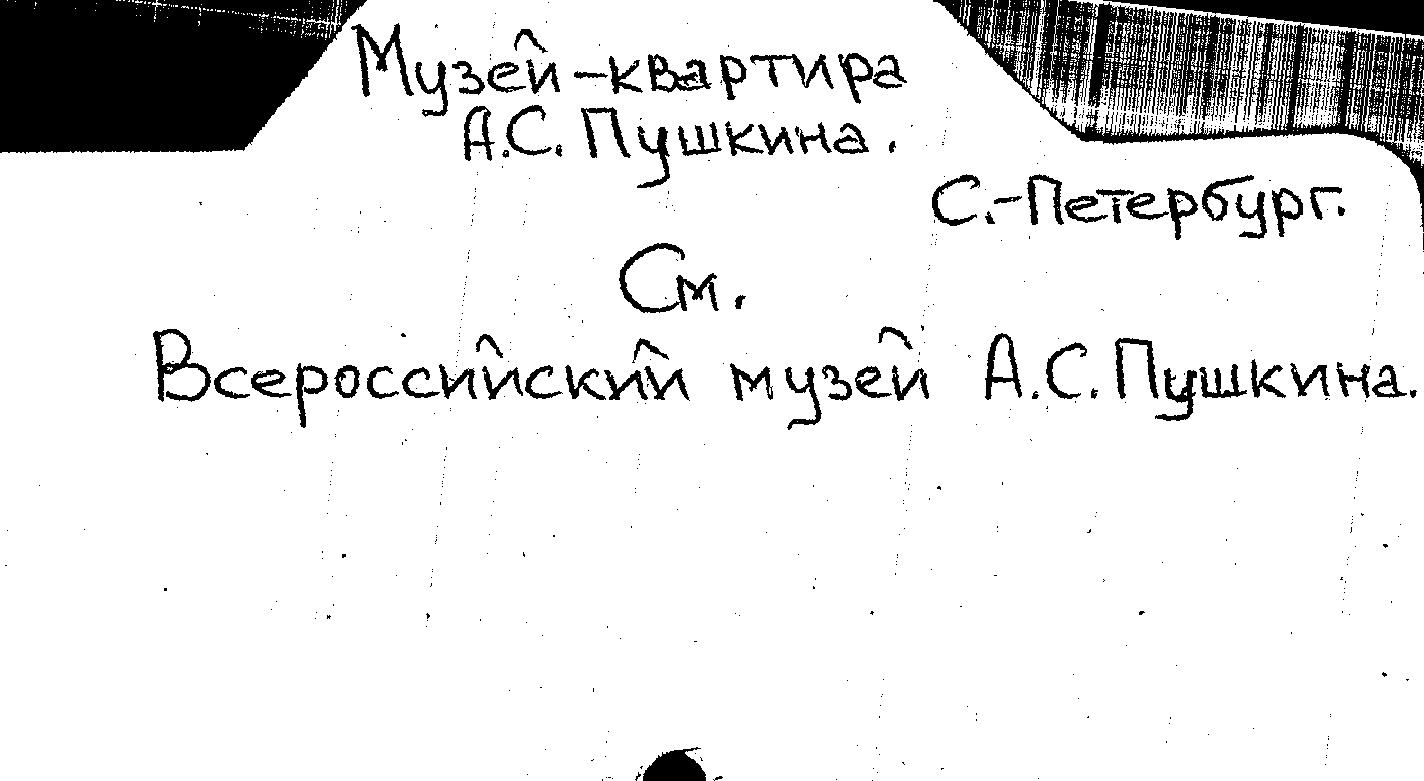 Музей-квартира
А.С. Пушкина.
С.-Петербург.
См.
Всероссийский музей А.С. Пушкина.